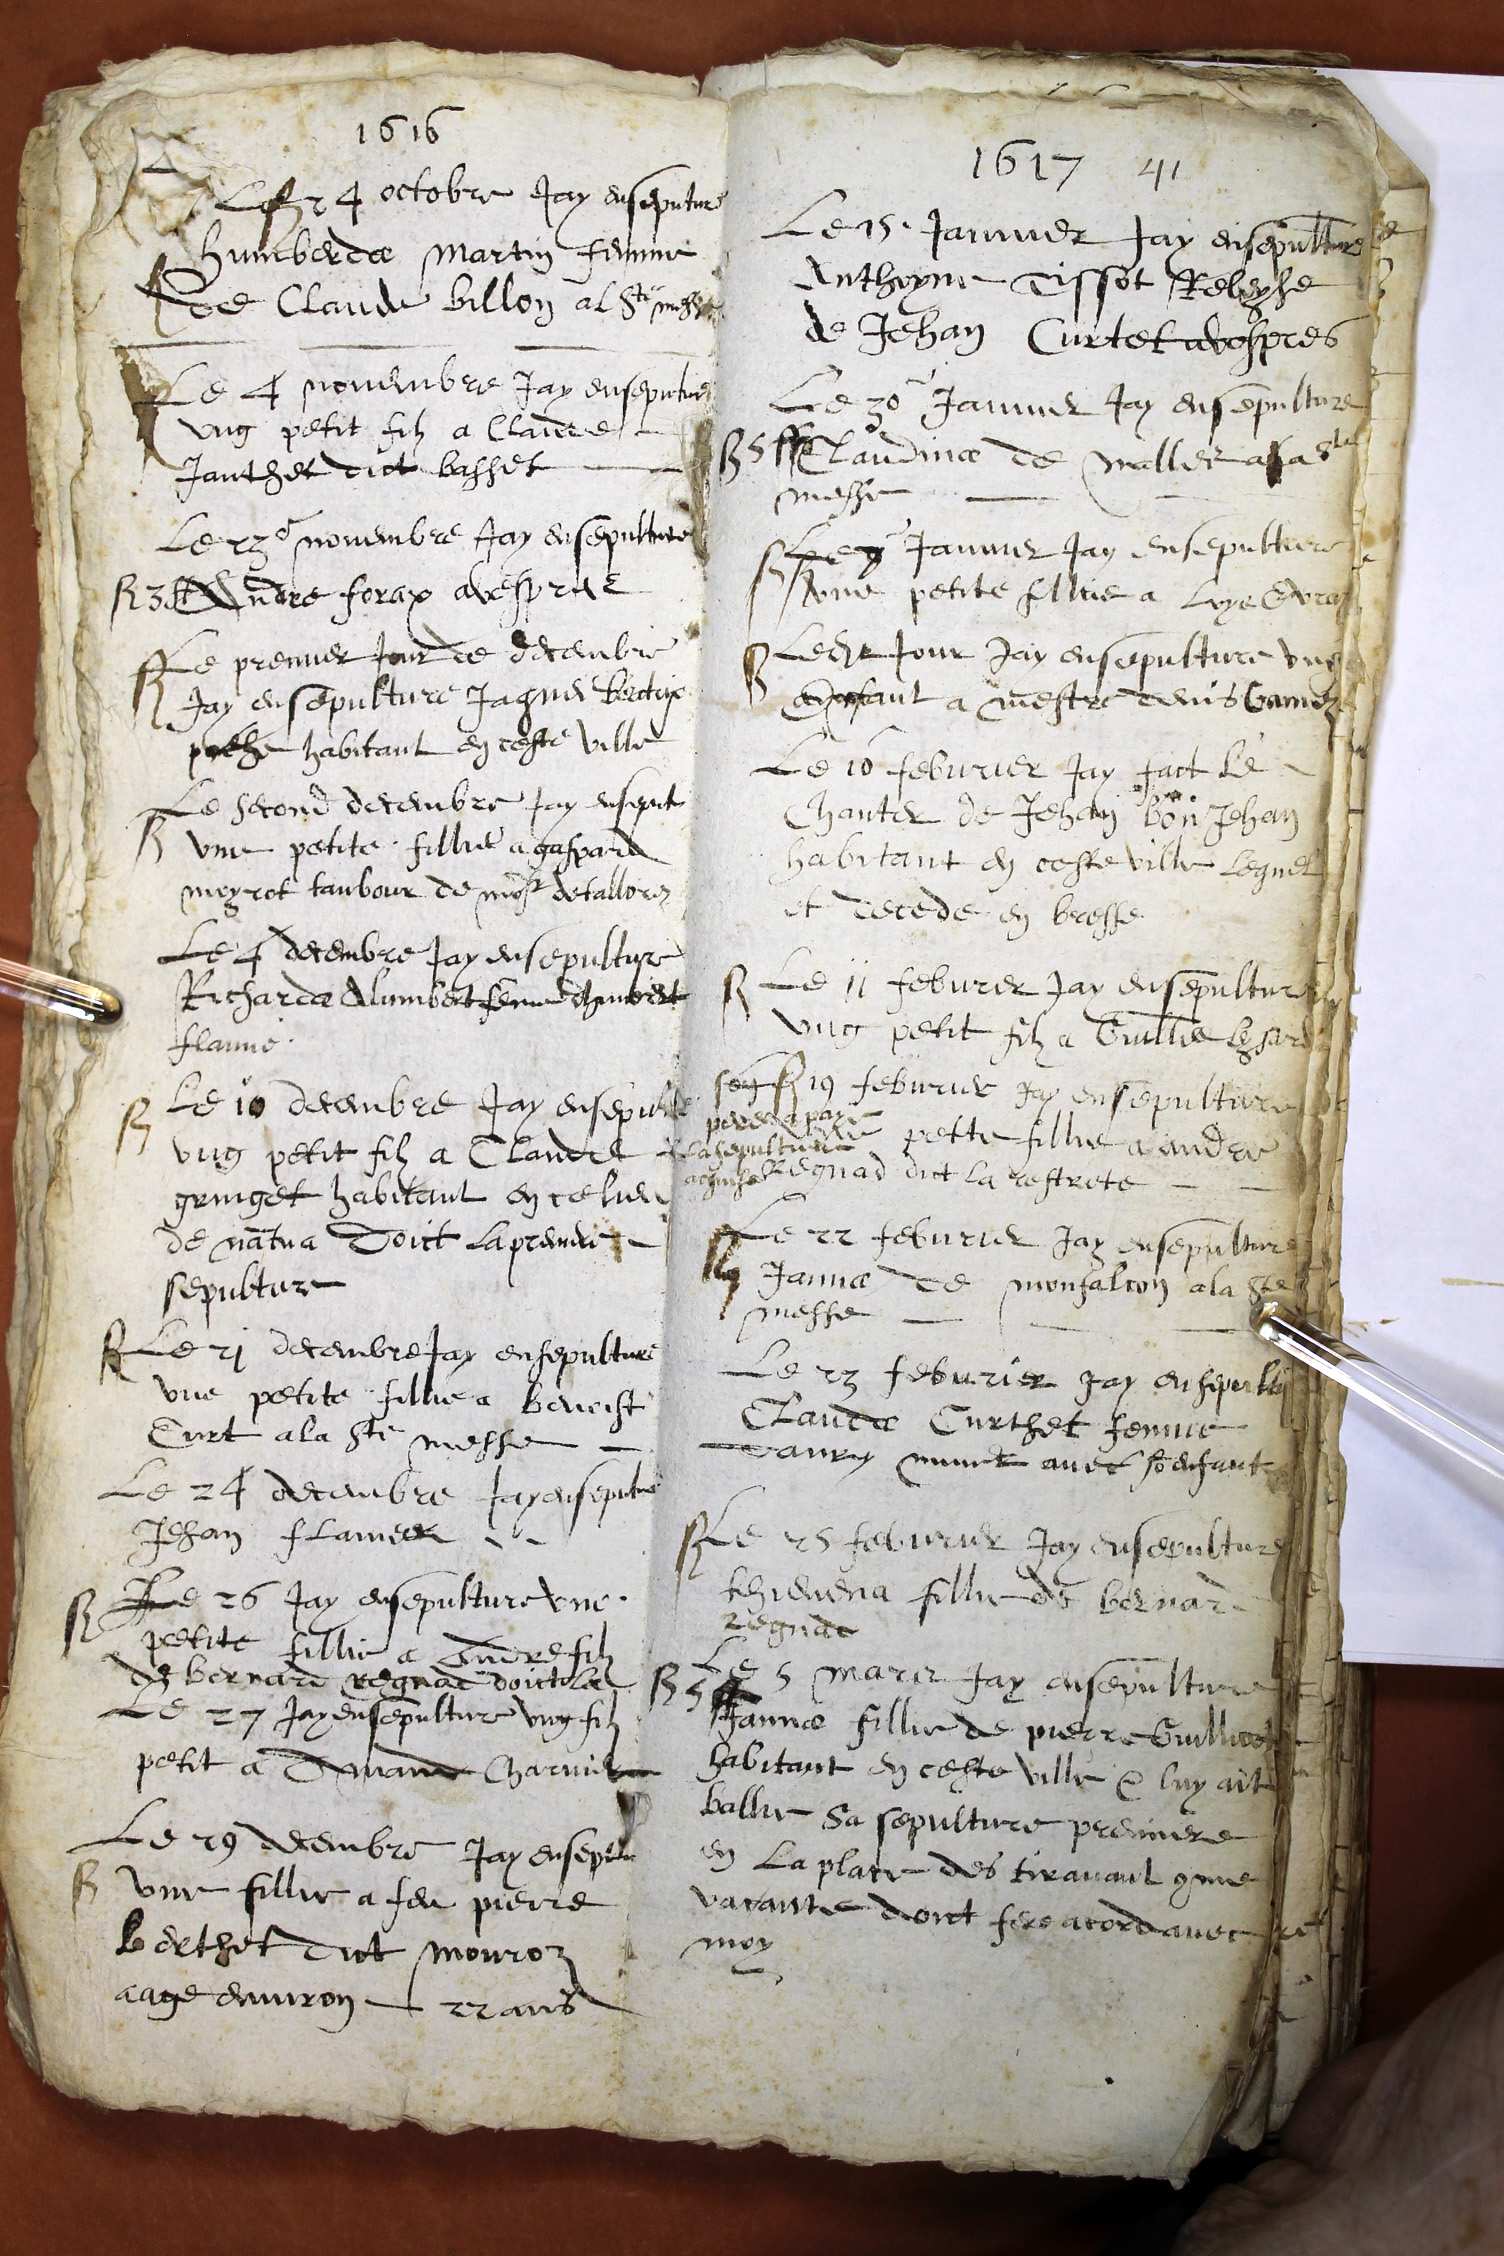 1616
Le 24 octobre Jay ensepulture
humberde martin femme
de Claude billon a la Ste messe
Le 4 novembre Jay ensepulture
ung petit filz a Claude
Janthet dict basset
Le 23e novembre Jay ensepulture
R 3 ff Andre forax a vespres
Le premier Jour de decembre
R Jay ensepulture Jaques
habitant en ceste ville
Le second decembre Jay ensepult
R une petite fillie a gaspard
meyrot tanbour de monsr detallorez
Le 4 decembre Jay ensepulture
Richarde Alumbert femme
flamie
R Le 10 decembre Jay ensepulture
ung petit filz a Claude
gringet habitant en ce lieu
de nantua doict la premiere
sepulture
R Le 21 decembre Jay ensepulture
une petite fillie a benoist
Curt a la Ste messe
Le 24 decembre Jay ensepulture
Jehan flamier
R Le 26 Jay ensepulture une
petite fillie a Andre filz
de bernard regnad doict la
Le 27 Jay ensepulture ung filz
petit a Amand Charvier
Le 29 decembre Jay ensepult
R une fillie a feu pierre
berthet dict mouroz
aage environ 22 ans
1617 41
Le 15 Janvier Jay ensepulture
Anthoyne Tissot
de Jehan Curtet a vespres
Le 30 Janvier Jay ensepulture
R 5 ff Claudine de a la Ste
messe
R Le Janvier Jay ensepulture
une petite fillie a
R Ledit Jour Jay ensepulture ung
enfant a mestre denis
Le 10 feburier Jay fact le
chanter de Jehan bon Jehan
habitant en ceste ville lequel
et decede en bresse
R Le 11 feburier Jay ensepulture
ung petit filz a
son R 19 feburier Jay ensepulture
pere a paye
la sepulture petite fillie a andre
Regnad dict la restrete
Le 22 feburier Jay ensepulture
R Janne de monfalcon a la Ste
messe
Le 23 feburier Jay ensepulture
Claude Curthet femme
avec son enfant
R Le 25 feburier Jay ensepulture
thievena fillie de bernard
regnad
R 5 ff Le 5 mars Jay ensepulture
Janne fillie de pierre
habitant en ceste ville & luy ait
ballie sa sepulture premiere
en La place des tiravant comme
vacante doict fere acord avec
moy